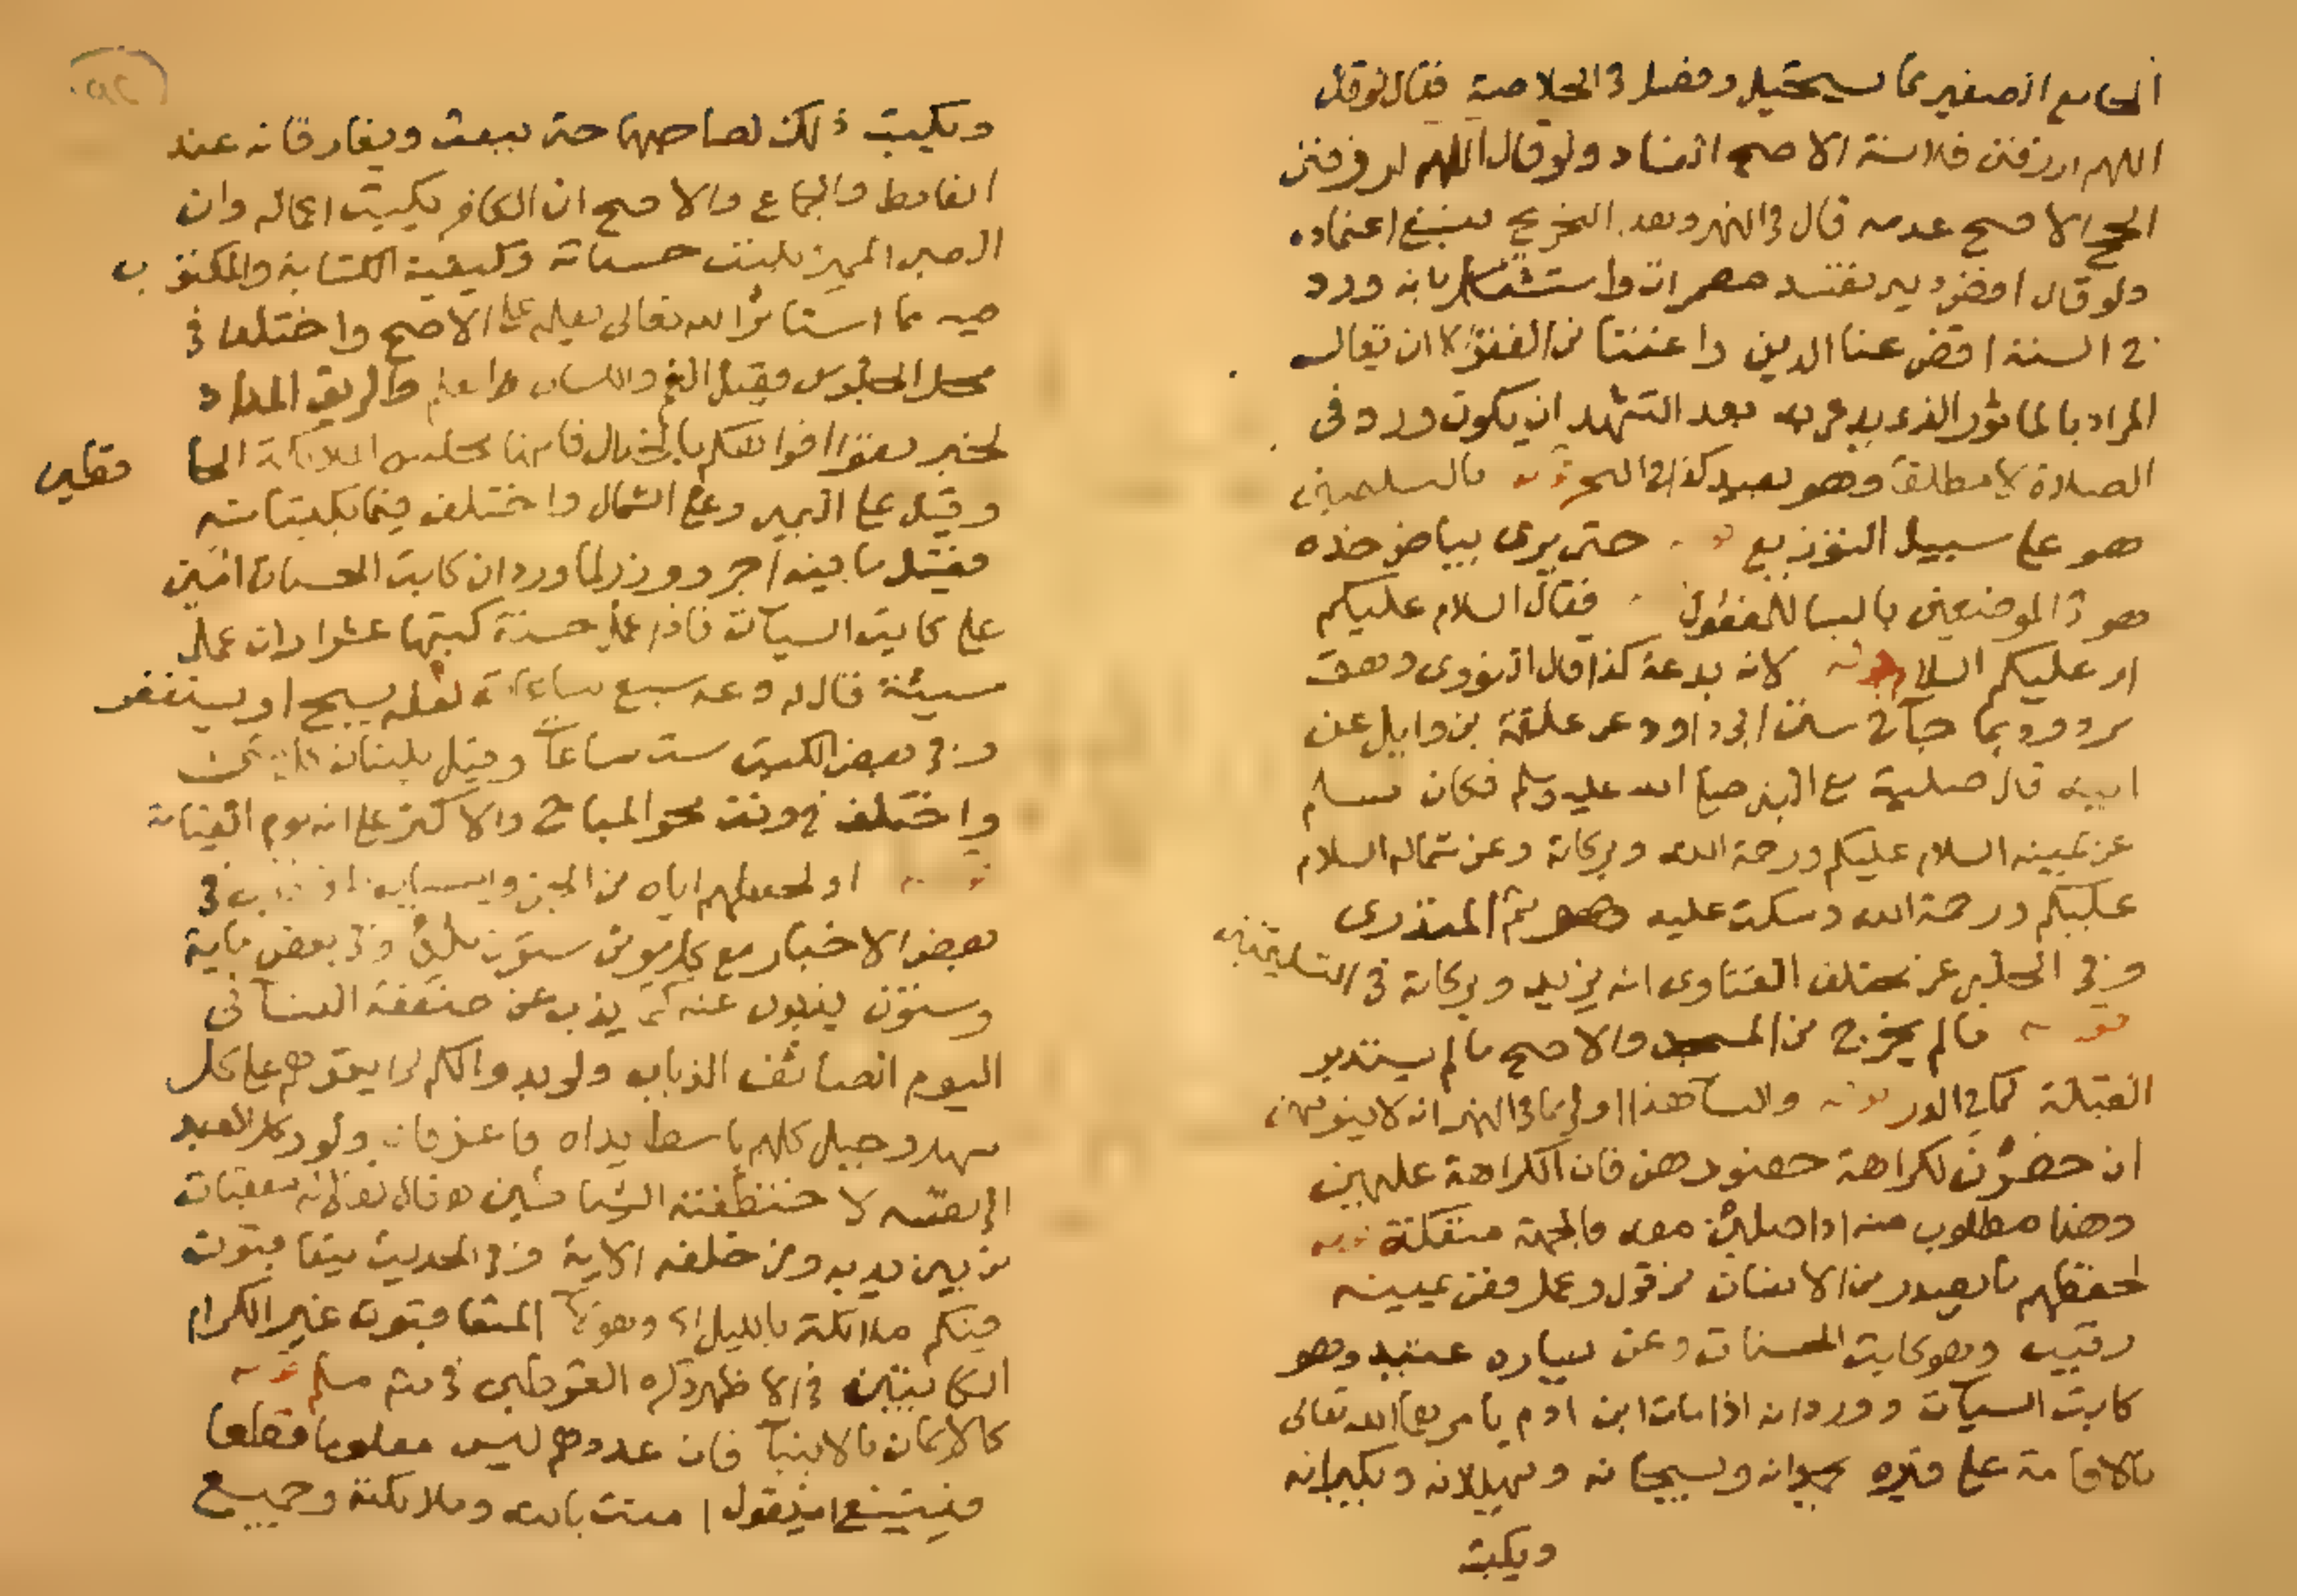 الجامع الصغير مما يستحيل وفصل في الخلاصة فقال لو قال
اللهم ارزقني فلانة الاصح الفساد ولو قال اللهم ارزقني
الحج الاصح عدمه قال في النهر وبعد التخريج ينبغي اعتماده
ولو قال اقض ديني تفسد واستشكل بانه ورد
في السنة اقض عنا الدين واغننا من الفقر الا ان يقال
المراد بالماثور الذي يدعو به بعد التشهد ان يكون ورد في
الصلاة لا مطلقا وهو بعيد كذا في البحر قوله
هو على سبيل التوزيع قوله حتى يرى بياض خده
هو في الموضعين بالبنا للمفعول فقال السلام عليكم
او عليكم السلام قوله لانه بدعة كذا قال النووي وهو
مردود بما جآ في سنن ابي داود عن علقمة بن وايل عن
ابيه قال صليت مع النبي صلى الله عليه وسلم فكان يسلم
عن يمينه السلام عليكم ورحمة الله وبركاته وعن شماله السلام
عليكم ورحمة الله وسكت عليه هو ثم المنذري
وفي الحلبي عن مختلف الفتاوى انه يزيد وبركاته في التسليمتين
قوله مالم يخرج من المسجد والاصح مالم يستدبر
القبلة كما في الدر قوله والنسآ هذا اولى مما في النهر انه لا ينويهن
ان حضرن لكراهة حضورهن فان الكراهة عليهن
وهذا مطلوب منه اذا صلين معه فالجهة منفكة قوله
لحفظهم ما يصدر من الانسان من قول وعمل فعن يمينه
رقيب وهو كاتب الحسنات وعن يساره عتيد وهو
كاتب السيآت وورد انه اذا مات ابن ادم يامرهما الله تعالى
بالاقامة على قبره يحمدانه ويسبحانه ويهللانه ويكبرانه
ويكتب
ويكتب ذلك لصاحبها حتى يبعث ويفارقانه عند
الغايط والجماع والاصح ان الكافر يكتب اعماله وان
الصبي المميز يكتب حسناته وكيفية الكتابة والمكتوب
فيه مما استاثر الله تعالى بعلمه على الاصح واختلف في
محل الجلوس فقيل الفم واللسان والريق المداد
لخبر نقوا افواهكم بالخلال فانها مجلس الملائكة الحافظين
وقيل على اليمين وعلى الشمال واختلف فيما يكتبانه
فقيل ما فيه اجر ووزر لما ورد ان كاتب الحسنات امين
على كاتب السيآت فاذا عمل حسنة كتبها عشرا وان عمل
سيئة قال له دعه سبع ساعات لعله يسبح او يستغفر
وفي بعض الكتب ست ساعات وقيل يكتبان كل شي
واختلف في وقت محو المباح والاكثر على انه يوم القيامة
قوله او لحفظهم اياه من الجن واسباب في
بعض الاخبار مع كل مومن ستون ملكا وفي بعض ماية
وستون يذبون عنه كما يذب عن ضعفة النسآ في
اليوم الصائف الذباب ولو بدوا لكم لرايتموهم على كل
سهل وجبل كلهم باسط يداه فاغر فاه ولو وكل العبد
الى نفسه لاختطفته الشياطين وقال تعالى له معقبات
من بين يديه ومن خلفه الاية وفي الحديث يتعاقبون
فيكم ملائكة بالليل اي وهولآ المتعاقبون غير الكرام
الكاتبين في الاظهر ذكره القرطبي في شرح مسلم قوله
كالايمان بالانبيآ فان عددهم ليس معلوما قطعا
فينبغي ان يقول امنت بالله وملائكته وجميع